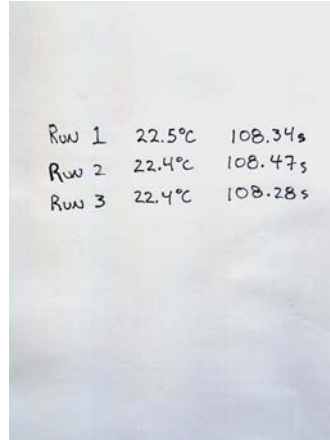 Run 1 22.5°C 108.34s
Run 2 22.4°C 108.47s
Run 3 22.4°C 108.28s